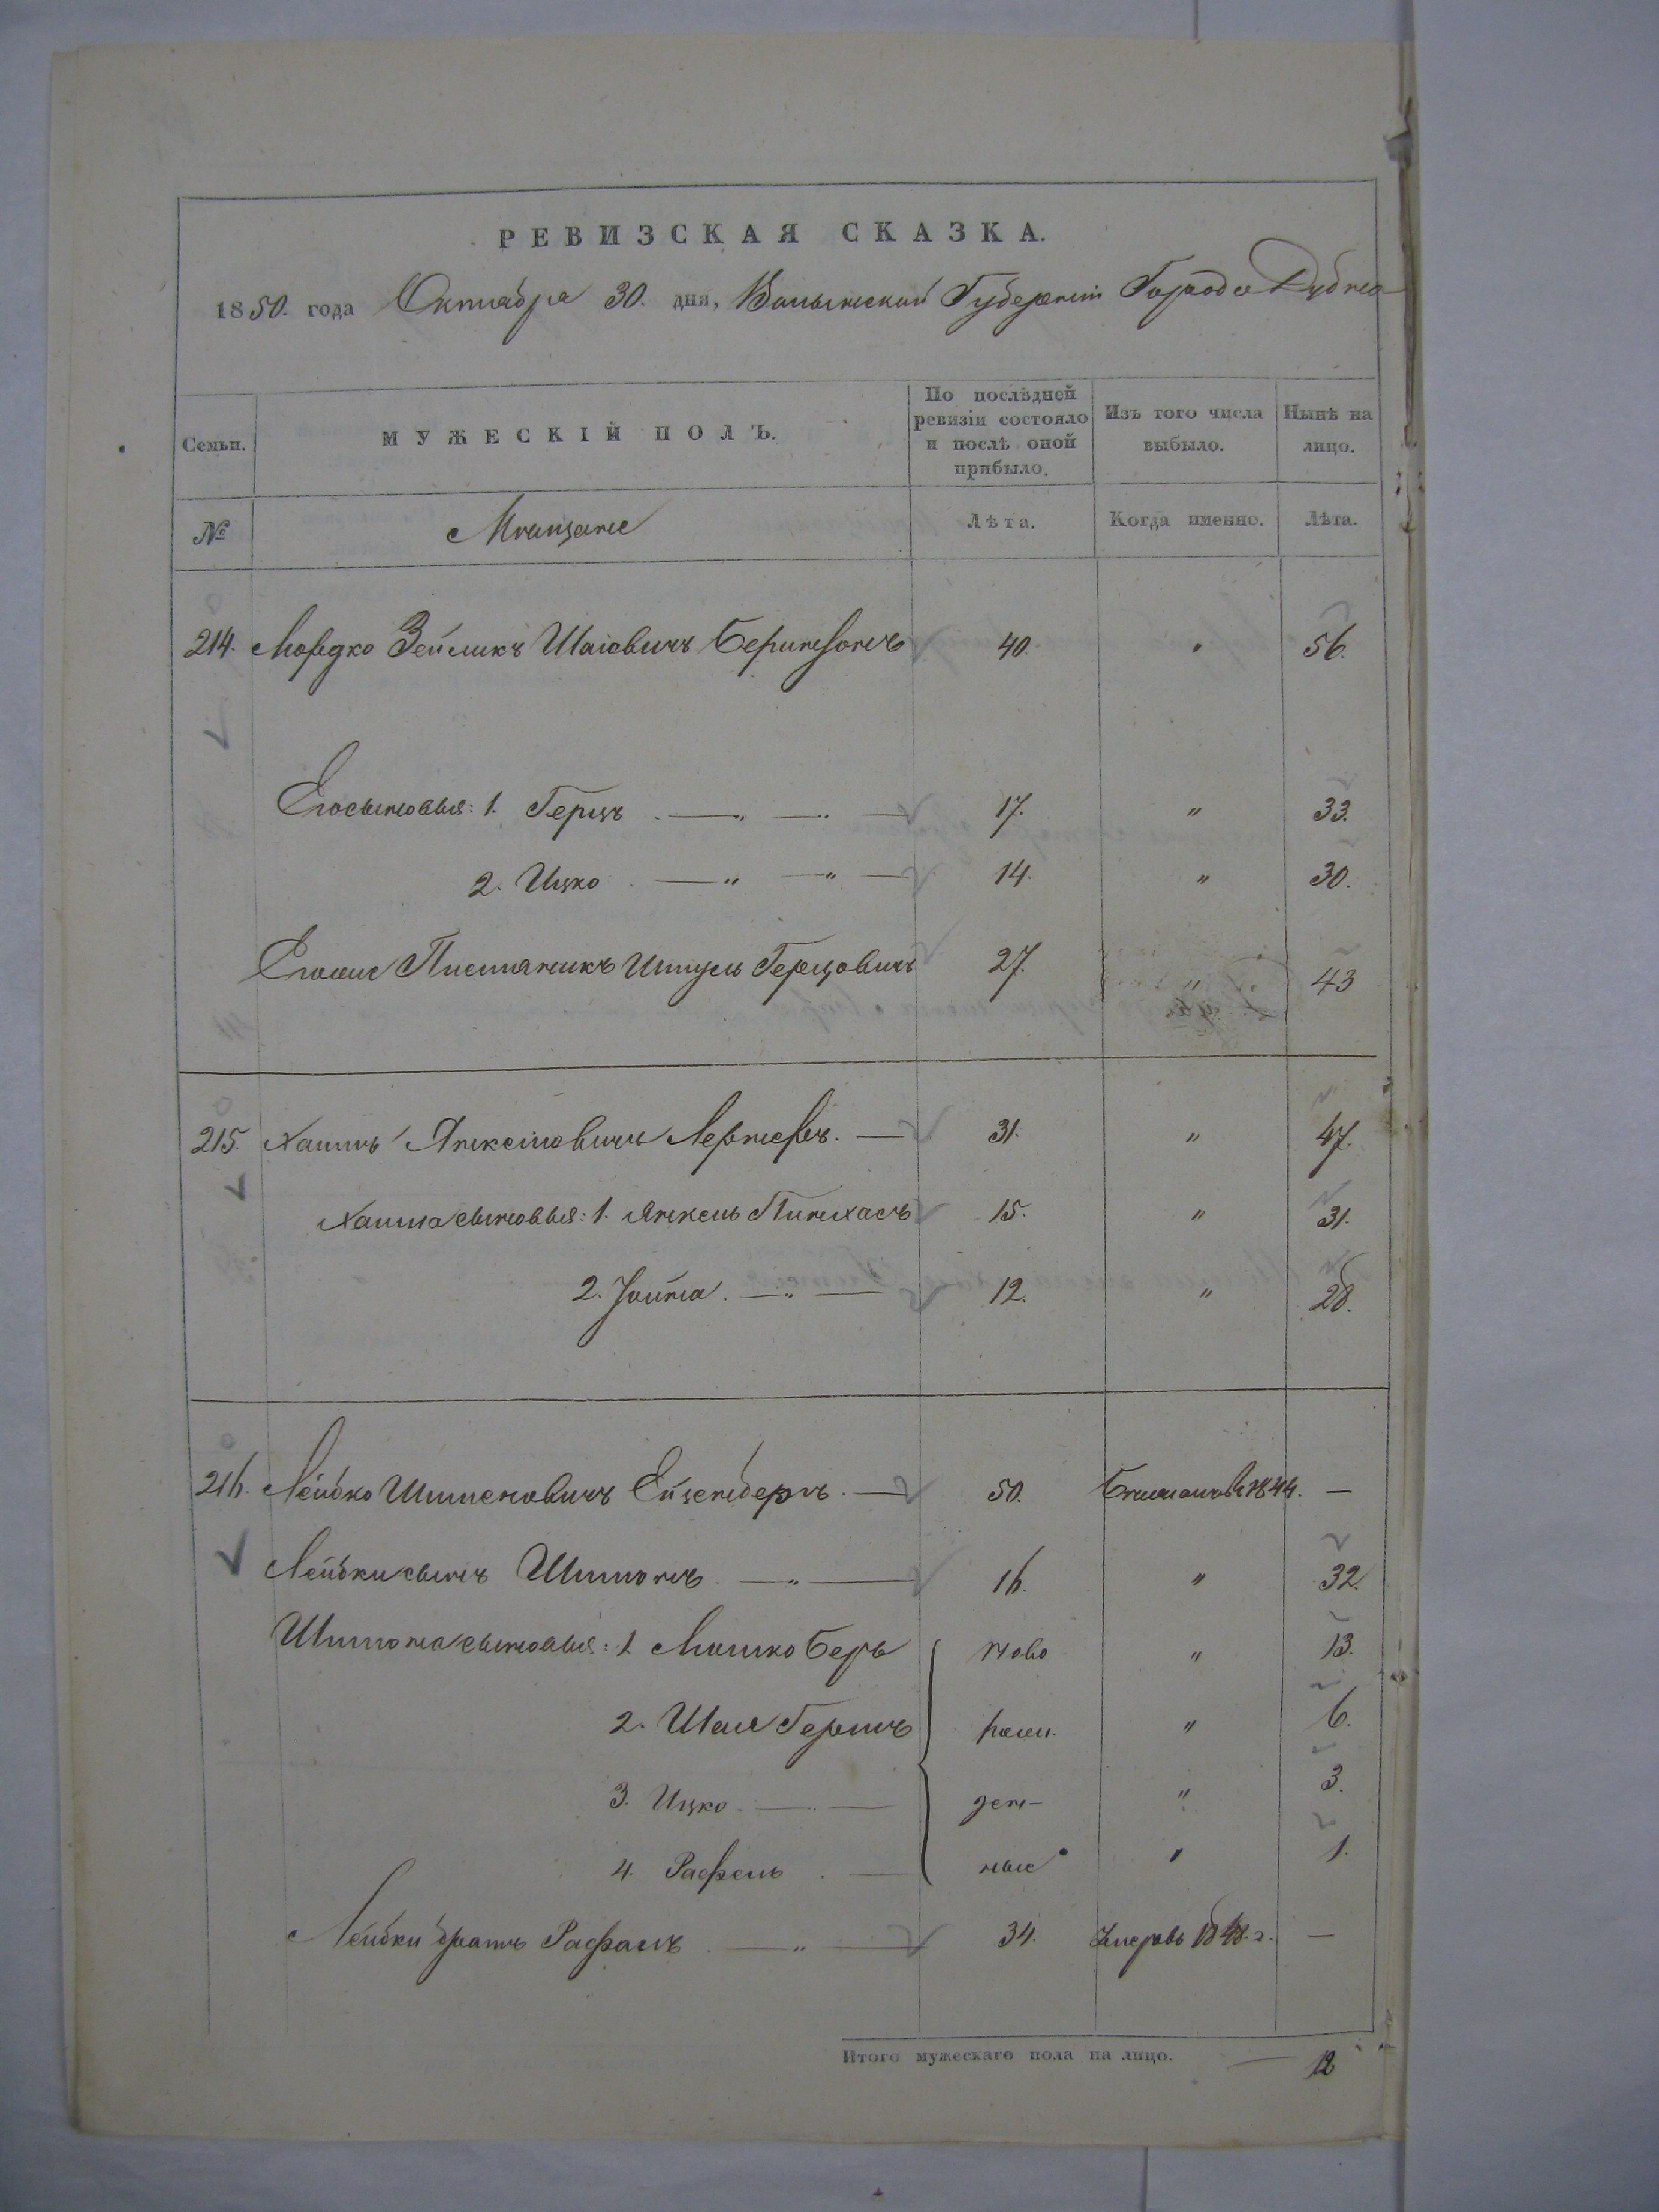 РЕВИЗСКАЯ СКАЗКА.
1850. года Октября 30. дня, Волынской Губернiи Города Дубна
Семьи. МУЖЕСКІЙ ПОЛЪ. По послѣдней ревизіи состояло и послѣ оной прибыло. Изъ того числа выбыло. Нынѣ на лицо.
№ Мѣщане Лѣта. Когда именно. Лѣта.
214. Мордко Зейликъ Шаiовичъ 40. " 56.
Его сыновья: 1. Герцъ —„— 17. " 33.
2. Ицко —„— 14. " 30.
Его Герцовичъ 27. " 43
215. Хаимъ Лернеръ. — 31. " 47.
Хаима сыновья: 1. Пинхасъ 15. " 31.
2. Iойна. —„— 12. " 28.
216. Лейбко Шимоновичъ Ейзенбергъ. — 50. 1844. —
Лейбки сынъ Шимонъ —„— 16. " 32.
Шимона сыновья: 1 Мошко Беръ ново " 13.
2. Шая Гершъ рож " 6.
3. Ицко. — ден- " 3.
4. Рафель — ные " 1.
Лейбки братъ Рафаилъ —„— 34. Умеръ въ 1848. г. —
Итого мужескаго пола на лицо. — 12